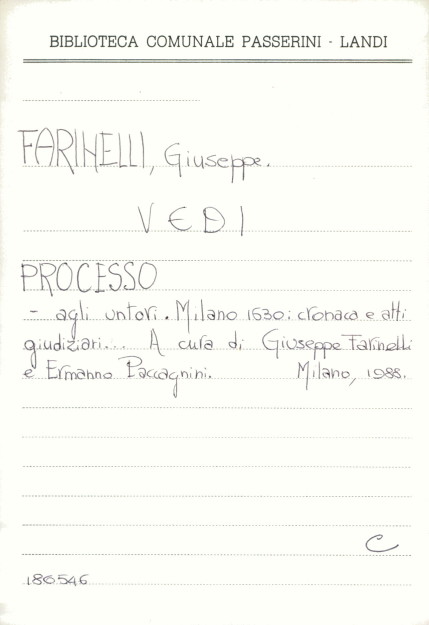 BIBLIOTECA COMUNALE PASSERINI - LANDI
FARINELLI, Giuseppe.
VEDI
PROCESSO
- agli untori. Milano 1630: cronaca e atti
giudiziari... A cura di Giuseppe Farinelli
e Ermanno Paccagnini. Milano, 1988.
C
186546